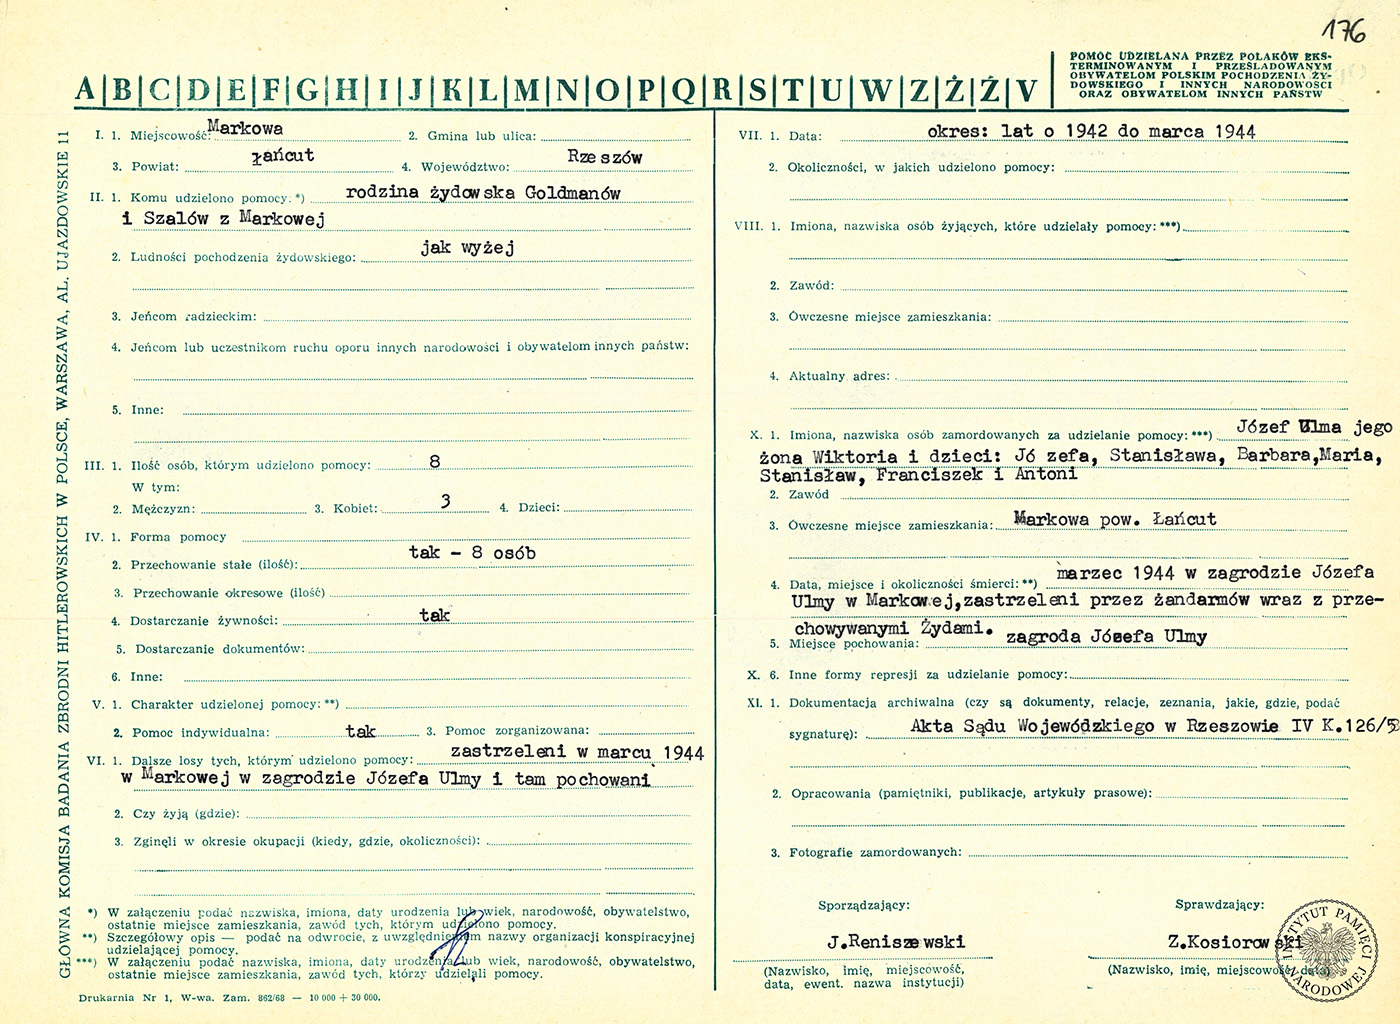 176
A|B|C|D|E|F|G|H|I|J|K|L|M|N|O|P|Q|R|S|T|U|W|Z|Ż|Ź|V
POMOC UDZIELANA PRZEZ POLAKÓW EKS-
TERMINOWANYM I PRZEŚLADOWANYM
OBYWATELOM POLSKIM POCHODZENIA ŻY-
DOWSKIEGO I INNYCH NARODOWOŚCI
ORAZ OBYWATELOM INNYCH PAŃSTW
GŁÓWNA KOMISJA BADANIA ZBRODNI HITLEROWSKICH W POLSCE, WARSZAWA, AL. UJAZDOWSKIE 11
I. 1. Miejscowość: Markowa 2. Gmina lub ulica:
3. Powiat: Łańcut 4. Województwo: Rzeszów
II. 1. Komu udzielono pomocy: *) rodzina żydowska Goldmanów
i Szalów z Markowej
2. Ludności pochodzenia żydowskiego: jak wyżej
3. Jeńcom radzieckim:
4. Jeńcom lub uczestnikom ruchu oporu innych narodowości i obywatelom innych państw:
5. Inne:
III. 1. Ilość osób, którym udzielono pomocy: 8
W tym:
2. Mężczyzn: 3. Kobiet: 3 4. Dzieci:
IV. 1. Forma pomocy
2. Przechowanie stałe (ilość): tak - 8 osób
3. Przechowanie okresowe (ilość)
4. Dostarczanie żywności: tak
5. Dostarczanie dokumentów:
6. Inne:
V. 1. Charakter udzielonej pomocy: **)
2. Pomoc indywidualna: tak 3. Pomoc zorganizowana:
VI. 1. Dalsze losy tych, którym udzielono pomocy: zastrzeleni w marcu 1944
w Markowej w zagrodzie Józefa Ulmy i tam pochowani
2. Czy żyją (gdzie):
3. Zginęli w okresie okupacji (kiedy, gdzie, okoliczności):
*) W załączeniu podać nazwiska, imiona, daty urodzenia lub wiek, narodowość, obywatelstwo,
ostatnie miejsce zamieszkania, zawód tych, którym udzielono pomocy.
**) Szczegółowy opis — podać na odwrocie, z uwzględnieniem nazwy organizacji konspiracyjnej
udzielającej pomocy.
***) W załączeniu podać nazwiska, imiona, daty urodzenia lub wiek, narodowość, obywatelstwo,
ostatnie miejsce zamieszkania, zawód tych, którzy udzielali pomocy.
Drukarnia Nr 1, W-wa. Zam. 862/68 — 10 000 + 30 000.
VII. 1. Data: okres: lat o 1942 do marca 1944
2. Okoliczności, w jakich udzielono pomocy:
VIII. 1. Imiona, nazwiska osób żyjących, które udzielały pomocy: ***)
2. Zawód:
3. Ówczesne miejsce zamieszkania:
4. Aktualny adres:
X. 1. Imiona, nazwiska osób zamordowanych za udzielanie pomocy: ***) Józef Ulma jego
żona Wiktoria i dzieci: Jó zefa, Stanisława, Barbara,Maria,
Stanisław, Franciszek i Antoni
2. Zawód
3. Ówczesne miejsce zamieszkania: Markowa pow. Łańcut
4. Data, miejsce i okoliczności śmierci: **) marzec 1944 w zagrodzie Józefa
Ulmy w Markowej,zastrzeleni przez żandarmów wraz z prze-
chowywanymi Żydami.
5. Miejsce pochowania: zagroda Józefa Ulmy
X. 6. Inne formy represji za udzielanie pomocy:
XI. 1. Dokumentacja archiwalna (czy są dokumenty, relacje, zeznania, jakie, gdzie, podać
sygnaturę): Akta Sądu Wojewódzkiego w Rzeszowie IV K.126/5
2. Opracowania (pamiętniki, publikacje, artykuły prasowe):
3. Fotografie zamordowanych:
Sporządzający: Sprawdzający:
J.Reniszewski Z.Kosiorowski
(Nazwisko, imię, miejscowość, (Nazwisko, imię, miejscowość, data)
data, ewent. nazwa instytucji)
INSTYTUT PAMIĘCI NARODOWEJ